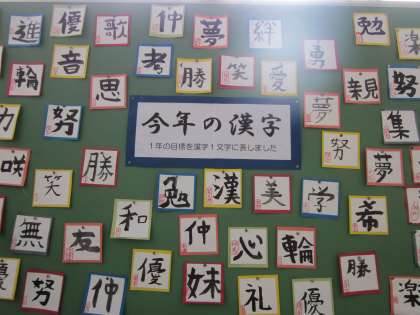 進 優 歌 仲 夢 絆 勉 楽
輪 音 考 勝 笑 愛 勇 親 努
思 夢
力 努 今年の漢字 努 集
1年の目標を漢字1文字に表しました
咲 笑 勝 夢
勉 漢 美 学 希
無 友 和 仲 心 輪
優 努 仲 優 妹 礼 優 勝 楽